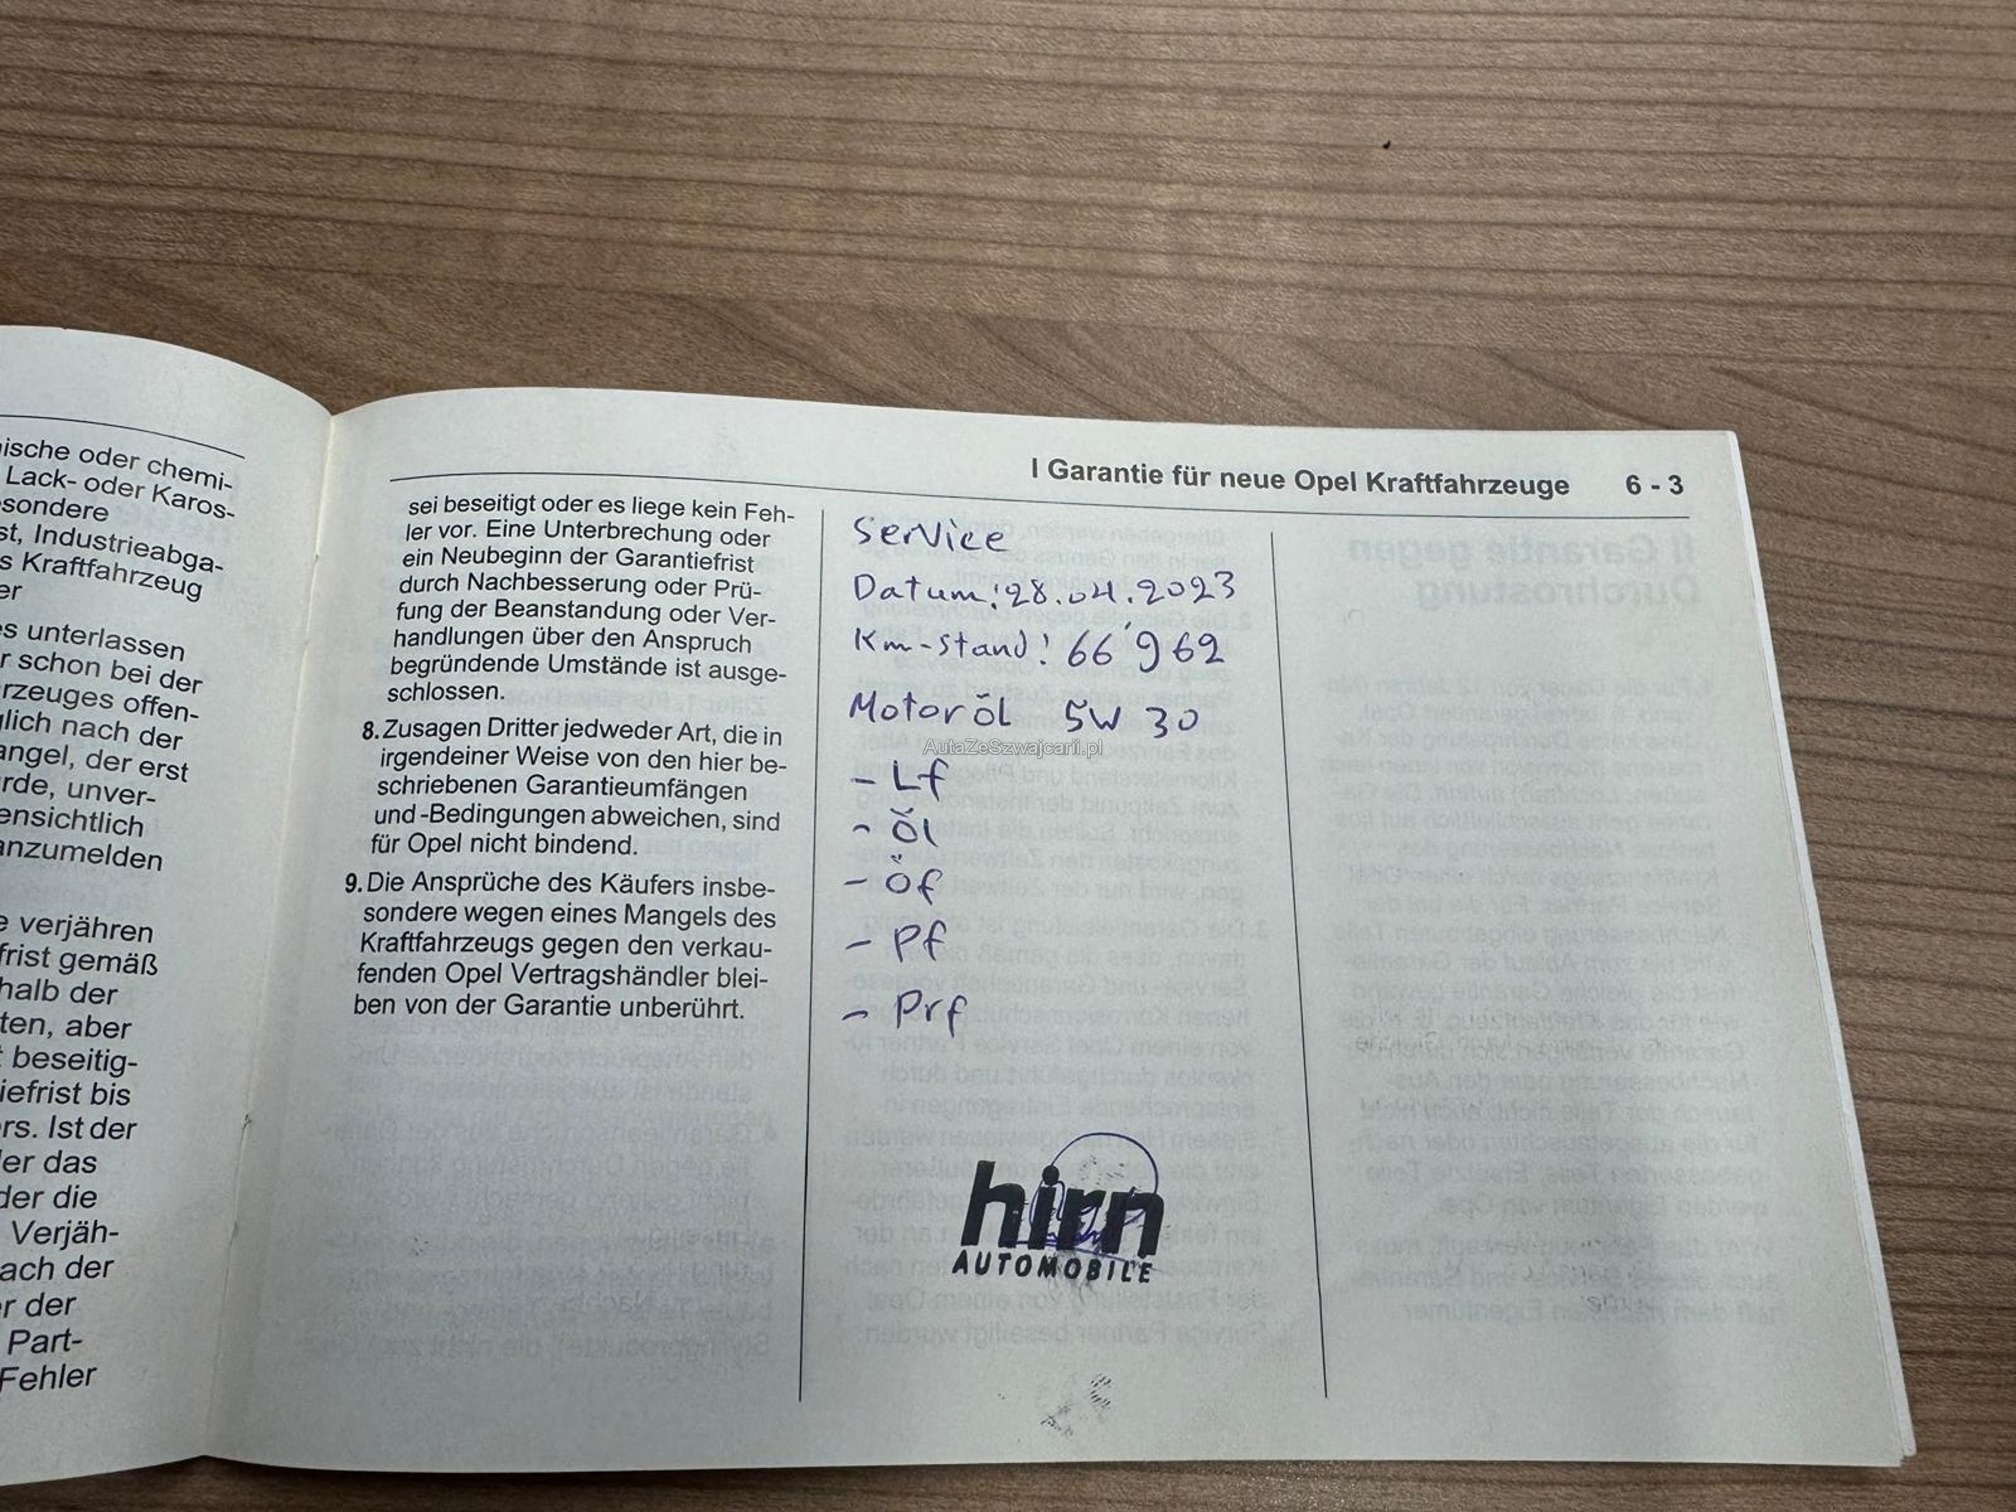 ische oder chemi-
Lack- oder Karos-
sondere
st, Industrieabga-
s Kraftfahrzeug
er
s unterlassen
r schon bei der
rzeuges offen-
lich nach der
angel, der erst
rde, unver-
ensichtlich
anzumelden
e verjähren
frist gemäß
halb der
ten, aber
t beseitig-
iefrist bis
rs. Ist der
er das
der die
Verjäh-
ach der
r der
Part-
Fehler
I Garantie für neue Opel Kraftfahrzeuge 6 - 3
sei beseitigt oder es liege kein Feh-
ler vor. Eine Unterbrechung oder
ein Neubeginn der Garantiefrist
durch Nachbesserung oder Prü-
fung der Beanstandung oder Ver-
handlungen über den Anspruch
begründende Umstände ist ausge-
schlossen.
8. Zusagen Dritter jedweder Art, die in
irgendeiner Weise von den hier be-
schriebenen Garantieumfängen
und -Bedingungen abweichen, sind
für Opel nicht bindend.
9. Die Ansprüche des Käufers insbe-
sondere wegen eines Mangels des
Kraftfahrzeugs gegen den verkau-
fenden Opel Vertragshändler blei-
ben von der Garantie unberührt.
Service
Datum: 28.04.2023
Km-stand: 66'962
Motoröl 5W30
AutaZeSzwajcarii.pl
- Lf
- Öl
- Öf
- Pf
- Prf
hirn
AUTOMOBILE
II Garantie gegen
Durchrostung